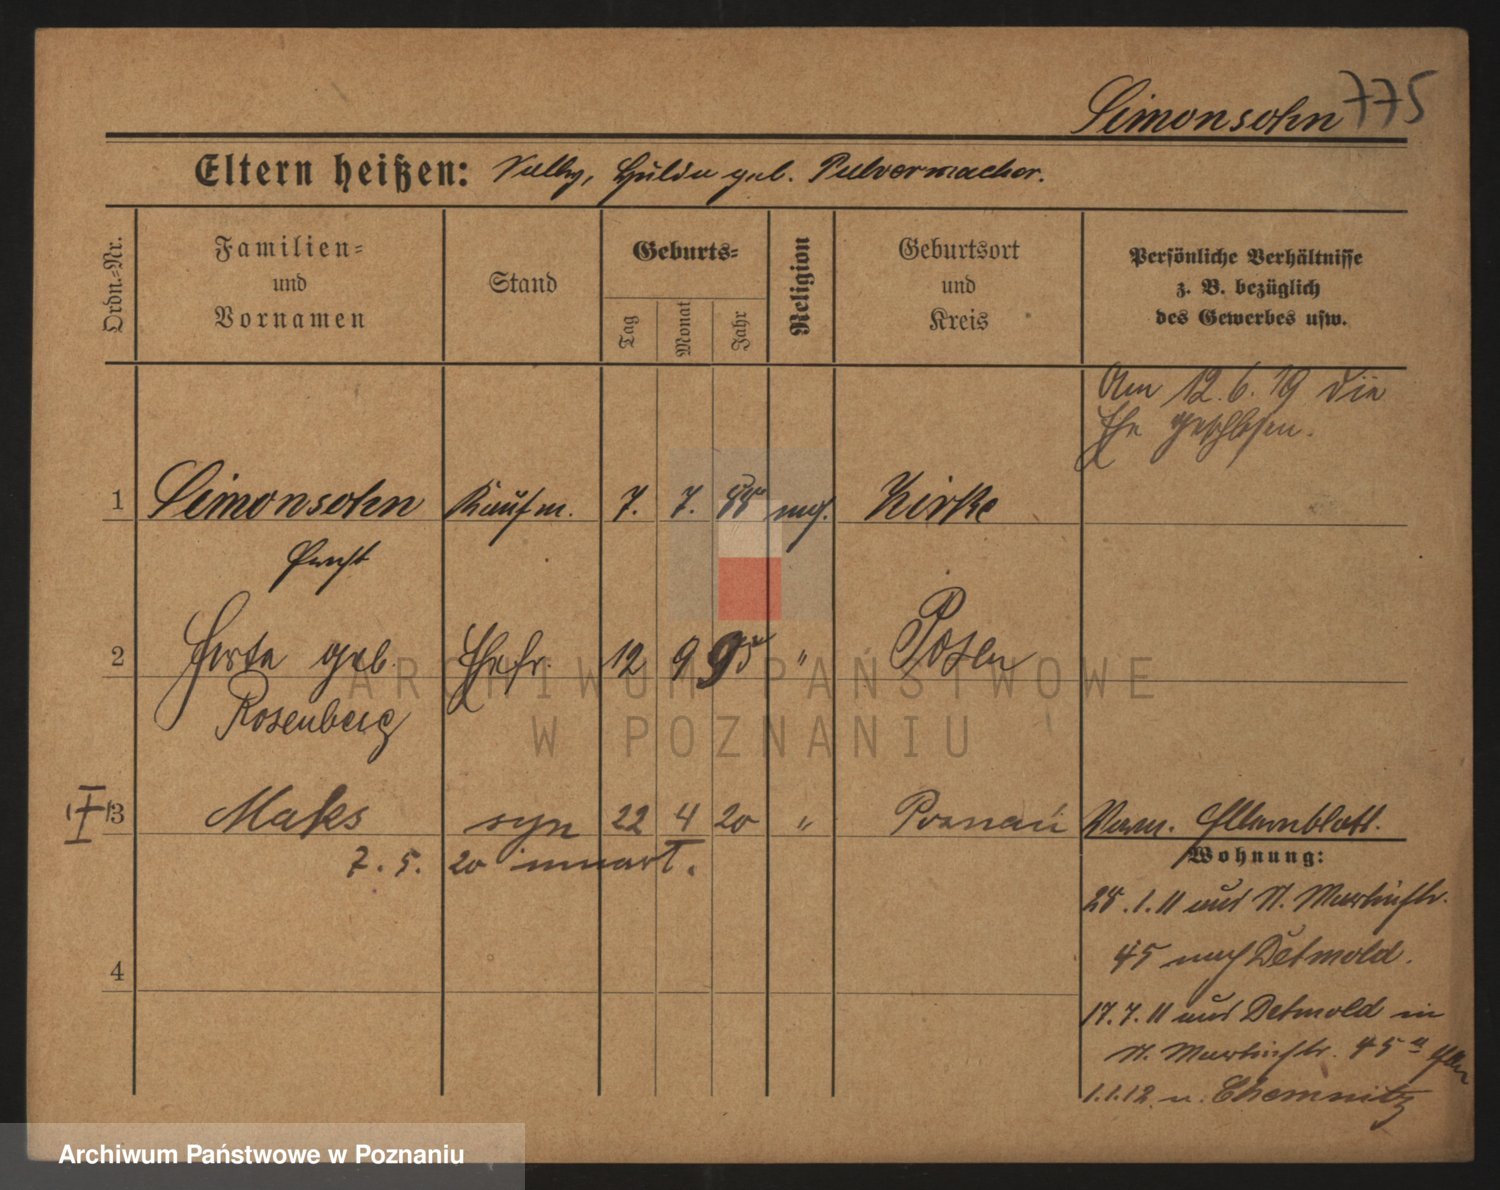 Simonsohn 775
Eltern heißen: Hulda geb. Pulvermacher.
Ordn.-Nr.
Familien-
und
Vornamen
Stand
Geburts-
Tag
Monat
Jahr
Religion
Geburtsort
und
Kreis
Persönliche Verhältnisse
z. B. bezüglich
des Gewerbes usw.
Am 12.6.19 die
Ehe geschlossen.
1 Simonsohn Kaufm. 7. 7. 88 mos. Zirke
2 Herta geb. Ehefr. 12 9 95 " Posen
Rosenberg
I 3 Maks syn 22 4 20 " Poznań Elternblatt.
7. 5. 20
Wohnung:
28.1.11 aus St. Martinstr.
45 nach Detmold.
4
17.7.11 aus Detmold in
St. Martinstr. 45
1.1.12 n. Chemnitz
ARCHIWUM PAŃSTWOWE
W POZNANIU
Archiwum Państwowe w Poznaniu